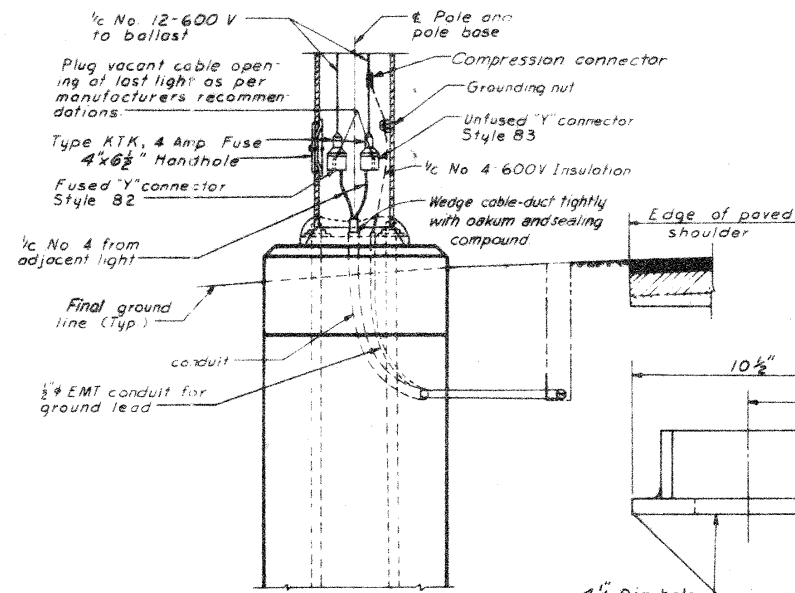 1/c No. 12-600 V
to ballast
℄ Pole and
pole base
Plug vacant cable open-
ing at last light as per
manufacturers recommen-
dations.
Compression connector
Grounding nut
Type KTK, 4 Amp. Fuse
4"x6½" Handhole
Unfused "Y" connector
Style 83
Fused "Y" connector
Style 82
1/c No 4-600V Insulation
Wedge cable-duct tightly
with oakum and sealing
compound.
Edge of paved
shoulder
1/c No. 4 from
adjacent light
Final ground
line (Typ.)
conduit
½"φ EMT conduit for
ground lead
10½"
Dia hole